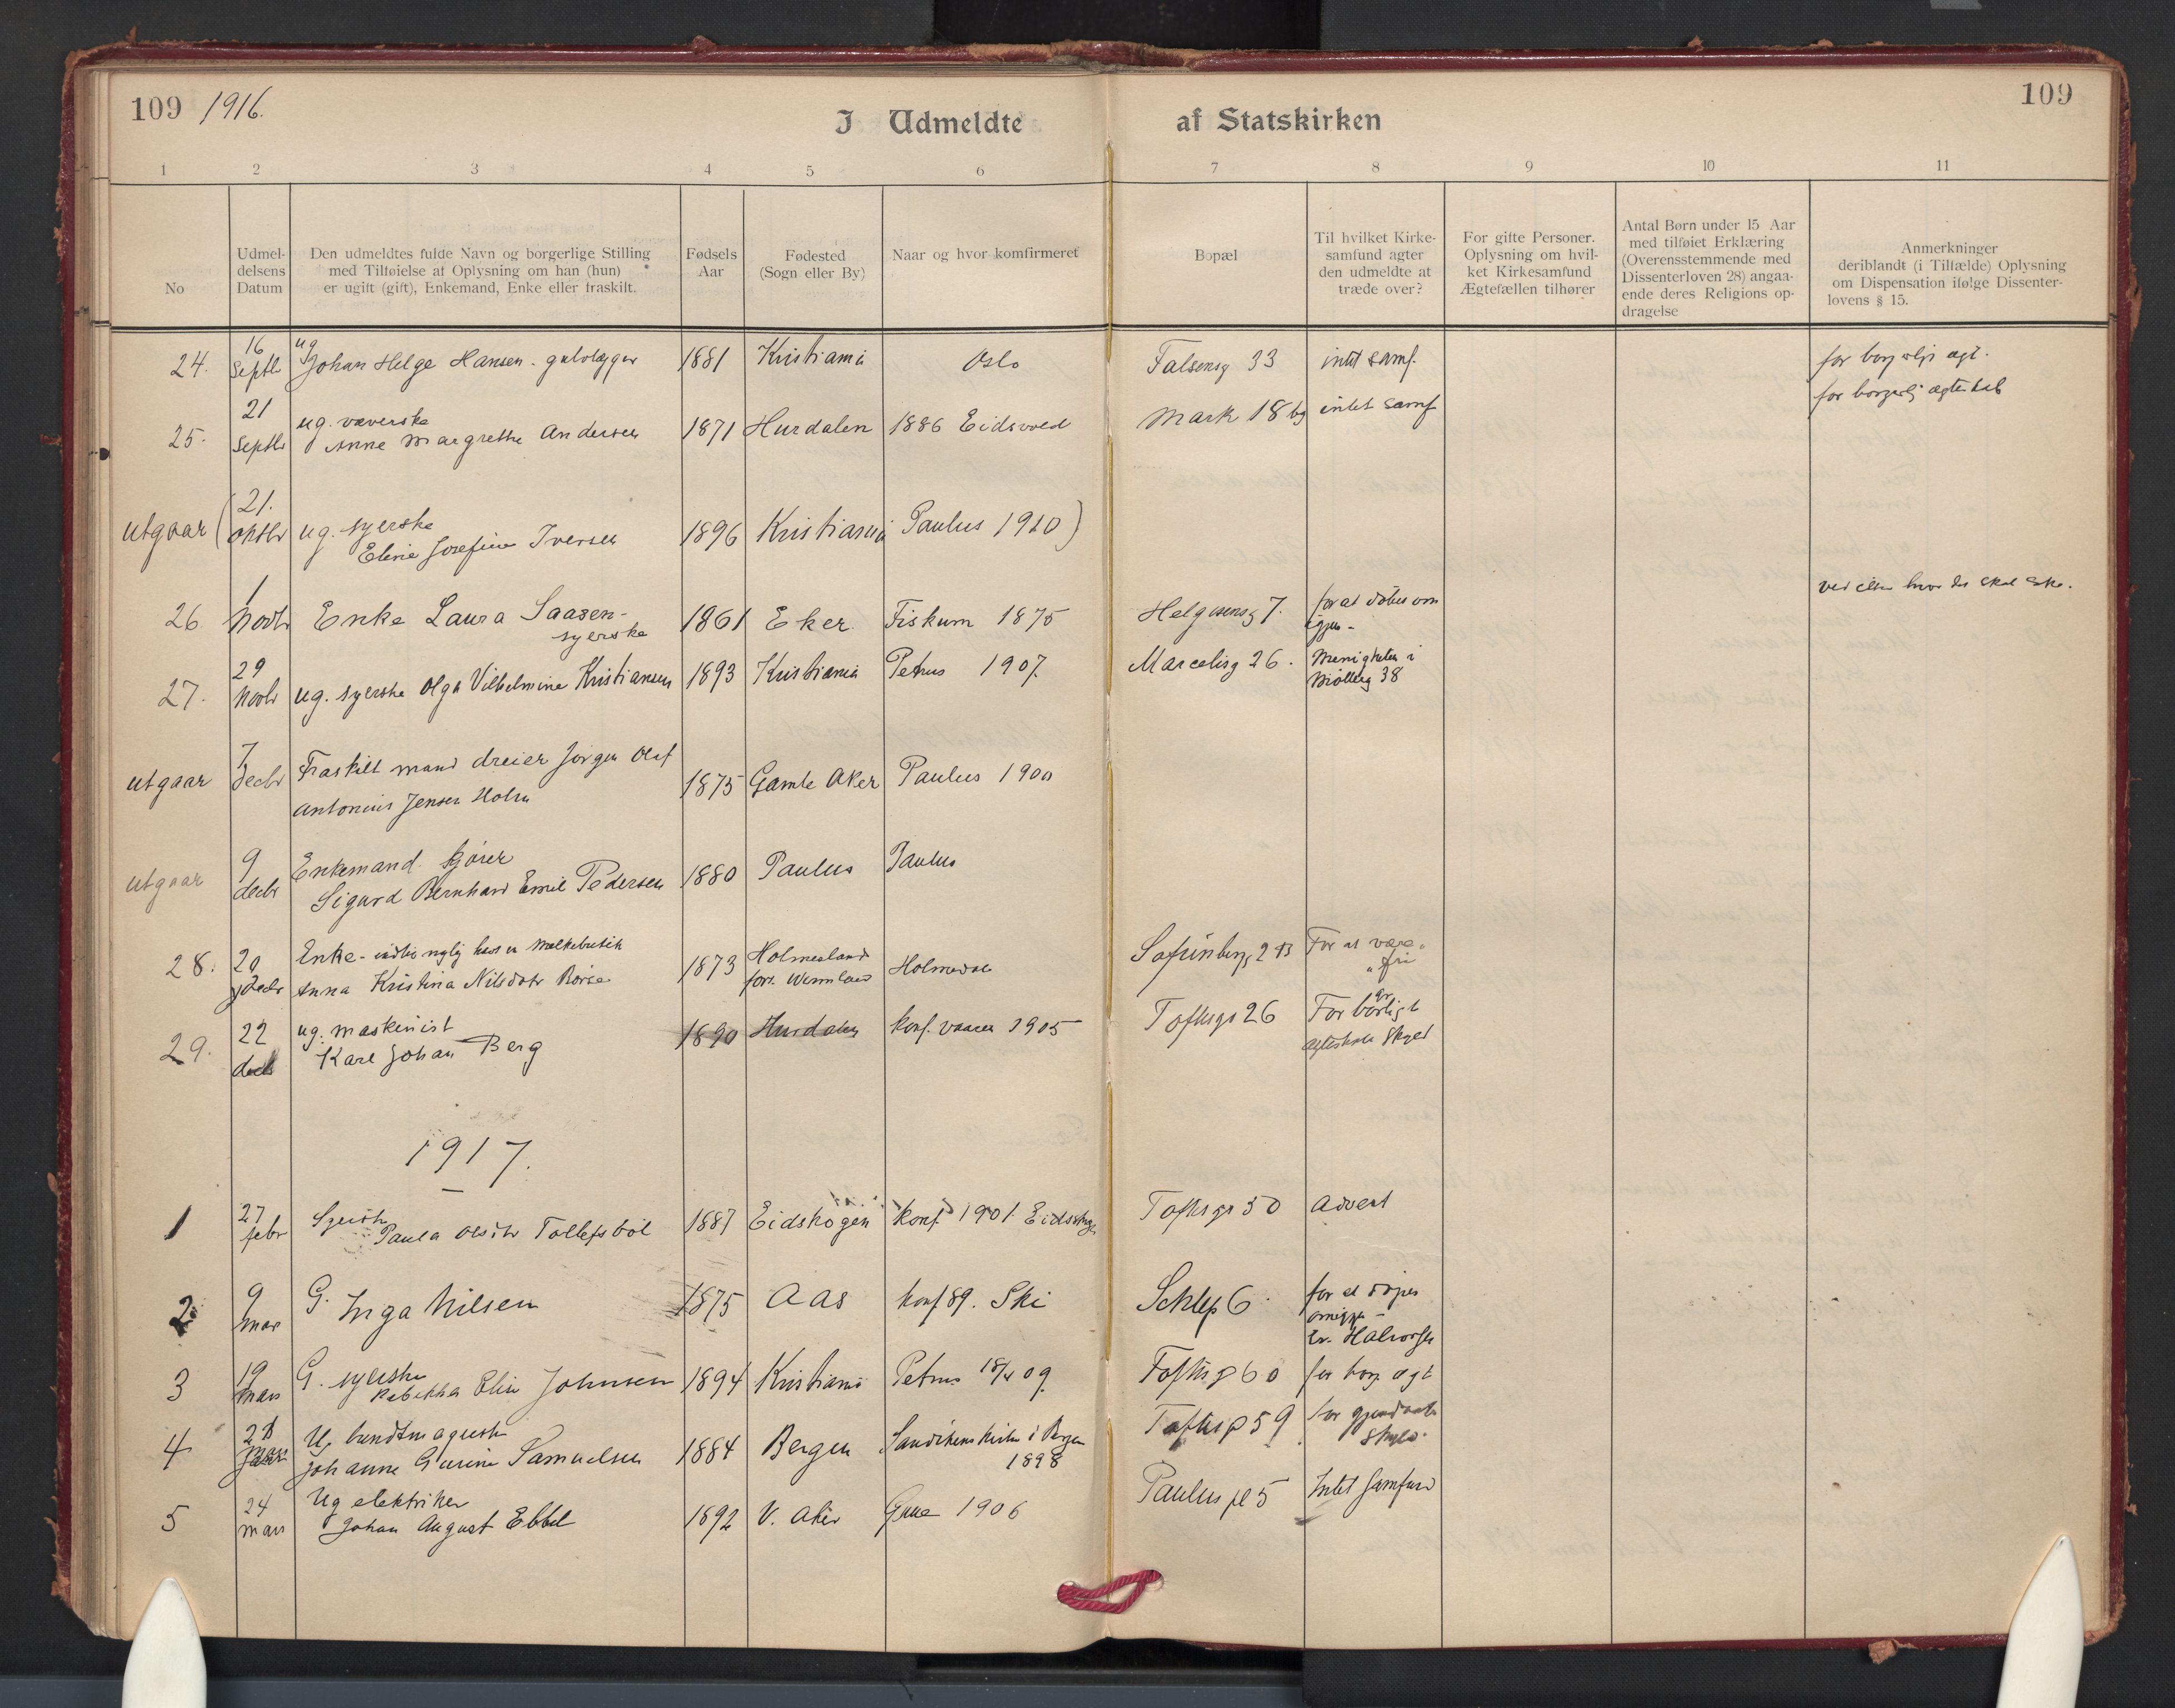 109 1916.
I Udmeldte af Statskirken
109
1 2 3 4 5 6 7 8 9 10 11
No
Udmel-
delsens
Datum
Den udmeldtes fulde Navn og borgerlige Stilling
med Tilføielse af Oplysning om han (hun)
er ugift (gift), Enkemand, Enke eller fraskilt.
Fødsels
Aar
Fødested
(Sogn eller By)
Naar og hvor komfirmeret
Bopæl
Til hvilket Kirke-
samfund agter
den udmeldte at
træde over?
For gifte Personer.
Oplysning om hvil-
ket Kirkesamfund
Ægtefællen tilhører
Antal Børn under 15 Aar
med tilføiet Erklæring
(Overensstemmende med
Dissenterloven 28) angaa-
ende deres Religions op-
dragelse
Anmerkninger
deriblandt (i Tilfælde) Oplysning
om Dispensation ifølge Dissenter-
lovens § 15.
24. 16 Septbr ug Johan Helge Hansen - gulvlægger 1881 Kristiania Oslo Falsensg 33 intet samf.
25. 21 Septbr ug. væverske
Anne Margrethe Andersen 1871 Hurdalen 1886 Eidsvold Mark 18 intet samf for borgerlig ægteskab
utgaar (21. oktbr ug. syerske
Eline Josefine Iversen 1896 Kristiania Paulus 1910)
26 1 Novbr Enke Laura Saasen -
syerske 1861 Eker Fiskum 1875 Helgesensg 7. for at døbes om
igjen -
27. 29 Novbr ug. syerske Olga Vilhelmine Kristiansen 1893 Kristiania Petrus 1907. Marcelisg 26. Menigheten i
Møllerg 38
utgaar 7 decbr Fraskilt mand dreier Jørgen Olaf
Antonius Jensen Holm 1875 Gamle Aker Paulus 1900
utgaar 9 decbr Enkemand kjører
Sigurd Bernhard Emil Pedersen 1880 Paulus Paulus
28. 20 Decbr Enke -
Anna Kristina Nilsdotr 1873 Holmedal For at være
"fri
29. 22 decbr ug. maskinist
Karl Johan Berg 1890 Hurdalen konf. 1905 Toftesgt 26 For borgerligt
ægteskabs skyld
1917.
1 27 febr Syerske
Paula Olsdtr Tollefsbøl 1887 Eidskogen konf 1901 Eidskogen Toftesgt 50 Advent
2. 9 mar G. Inga Nilsen 1875 Aas konf 89. Ski Schlep 6.
3 19 mars G. syerske
Rebekka Elise Johnsen 1894 Kristiania Petrus 18/4 09. Toftesg 60 for borg. ægt
4 mars Ug. buntmagerske
Johanne Gurine Samuelsen 1884 Bergen Sandvikens kirke i Bergen
1898 Toftesg 59
skyld.
5 24 mars Ug elektriker
Johan August Ebbel 1892 V. Aker 1906 Paulus pl 5 Intet samfund